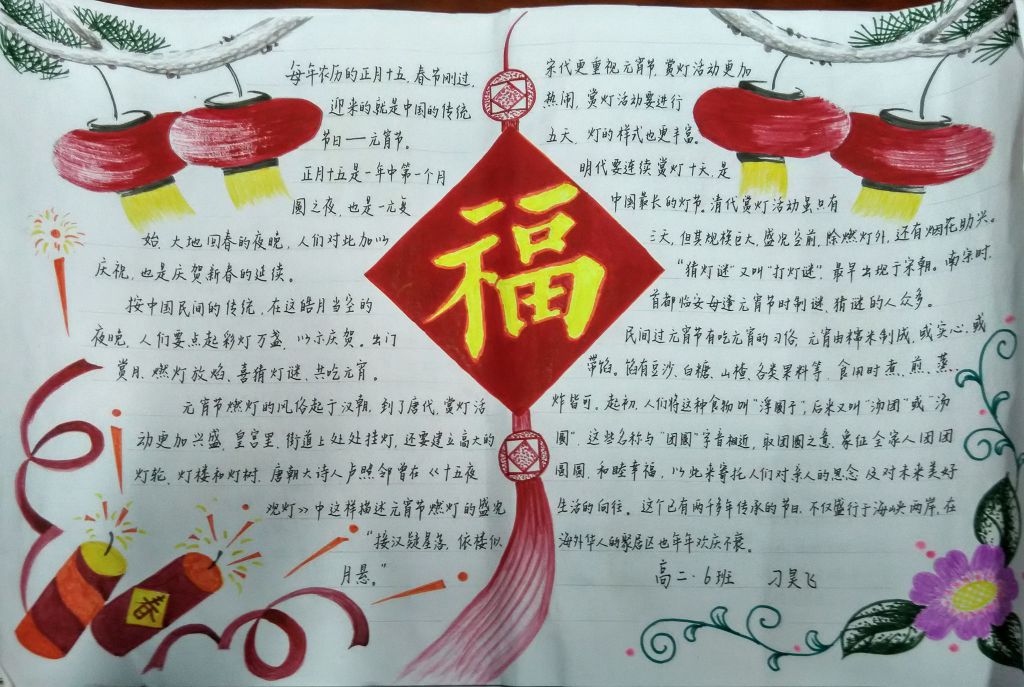 每年农历的正月十五，春节刚过，
迎来的就是中国的传统
节日——元宵节。
正月十五是一年中第一个月
圆之夜，也是一元复
始，大地回春的夜晚，人们对此加以
庆祝，也是庆贺新春的延续。
按中国民间的传统，在这皓月当空的
夜晚，人们要点起彩灯万盏，以示庆贺。出门
赏月、燃灯放焰、喜猜灯谜、共吃元宵。
元宵节燃灯的风俗起于汉朝，到了唐代，赏灯活
动更加兴盛，皇宫里，街道上处处挂灯，还要建立高大的
灯轮，灯楼和灯树，唐朝大诗人卢照邻曾在《十五夜
观灯》中这样描述元宵节燃灯的盛况
“接汉疑星落，依楼似
月悬。”
福
春
宋代更重视元宵节，赏灯活动更加
热闹，赏灯活动要进行
五天，灯的样式也更丰富。
明代要连续赏灯十天，是
中国最长的灯节。清代赏灯活动虽只有
三天，但其规模巨大，盛况空前，除燃灯外，还有烟花助兴。
“猜灯谜”又叫“打灯谜”，最早出现于宋朝。南宋时，
首都临安每逢元宵节时制谜，猜谜的人众多。
民间过元宵节有吃元宵的习俗，元宵由糯米制成，或实心，或
带馅。馅有豆沙、白糖、山楂、各类果料等，食用时煮、煎、蒸、
炸皆可。起初，人们将这种食物叫“浮圆子”，后来又叫“汤团”或“汤
圆”，这些名称与“团圆”字音相近，取团圆之意，象征全家人团团
圆圆，和睦幸福，以此来寄托人们对亲人的思念及对未来美好
生活的向往。这个已有两千多年传承的节日，不仅盛行于海峡两岸，在
海外华人的聚居区也年年欢庆不衰。
高二·6班 刁昊飞